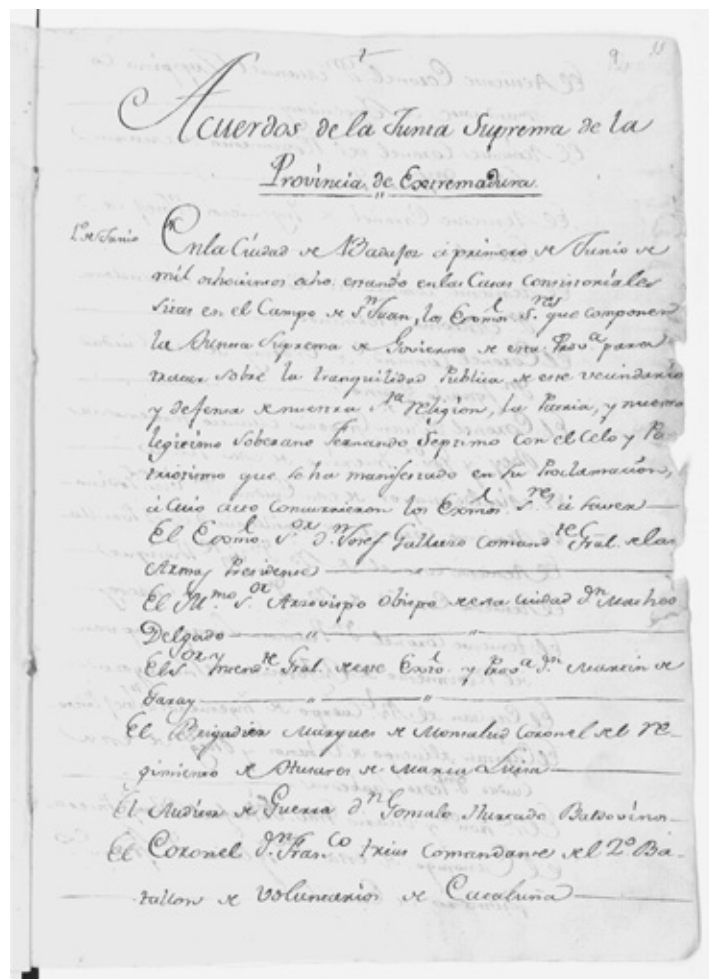 9
Acuerdos de la Junta Suprema de la
Provincia de Extremadura.
1.º de Junio
En la Ciudad de Badajoz á primero de Junio de
mil ochocientos ocho, estando en las Casas consistoriales
sitas en el Campo de Sn Juan, los Exmos. Sres que componen
la Junta Suprema de Govierno de esta Prova para
tratar sobre la tranquilidad Publica de este vecindario
y defensa de nuestra Sta religion, la Patria, y nuestro
legitimo Soberano Fernando Septimo con el Celo y Pa-
triotismo que se ha manifestado en su Proclamacion,
á cuio acto concurrieron los Exmos. Sres á saver
El Exmo. Sor Dn Josef Galluzo Comandte Gral. de las
Armas Presidente
El Yllmo Sor Arzovispo Obispo de esta Ciudad dn Matheo
Delgado
El Sor Yntendte Gral. de este Exto. y Prova dn Martin de
Garay
El Brigadier Marques de Monsalud Coronel del Re-
gimiento de Husares de Maria Luisa
El Auditor de Guerra dn Gonzalo Hurtado Baldovinos
El Coronel dn Franco Trias Comandante del 2º Ba-
tallon de Voluntarios de Cataluña